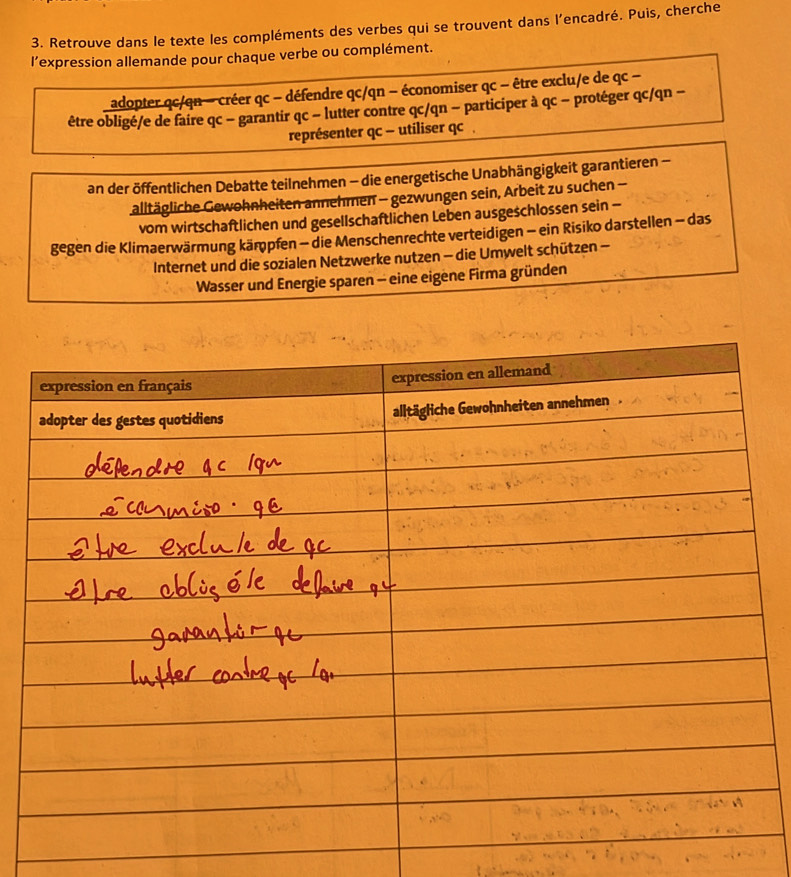 3. Retrouve dans le texte les compléments des verbes qui se trouvent dans l'encadré. Puis, cherche
l'expression allemande pour chaque verbe ou complément.
adopter qc/qn – créer qc – défendre qc/qn – économiser qc – être exclu/e de qc –
être obligé/e de faire qc – garantir qc – lutter contre qc/qn – participer à qc – protéger qc/qn –
représenter qc – utiliser qc
an der öffentlichen Debatte teilnehmen – die energetische Unabhängigkeit garantieren –
alltägliche Gewohnheiten annehmen – gezwungen sein, Arbeit zu suchen –
vom wirtschaftlichen und gesellschaftlichen Leben ausgeschlossen sein –
gegen die Klimaerwärmung kämpfen – die Menschenrechte verteidigen – ein Risiko darstellen – das
Internet und die sozialen Netzwerke nutzen – die Umwelt schützen –
Wasser und Energie sparen – eine eigene Firma gründen
expression en français expression en allemand
adopter des gestes quotidiens alltägliche Gewohnheiten annehmen
défendre qc /qn
qc
être exclu/e de qc
être obligé/e de faire qc
garantir qc
lutter contre qc /qn